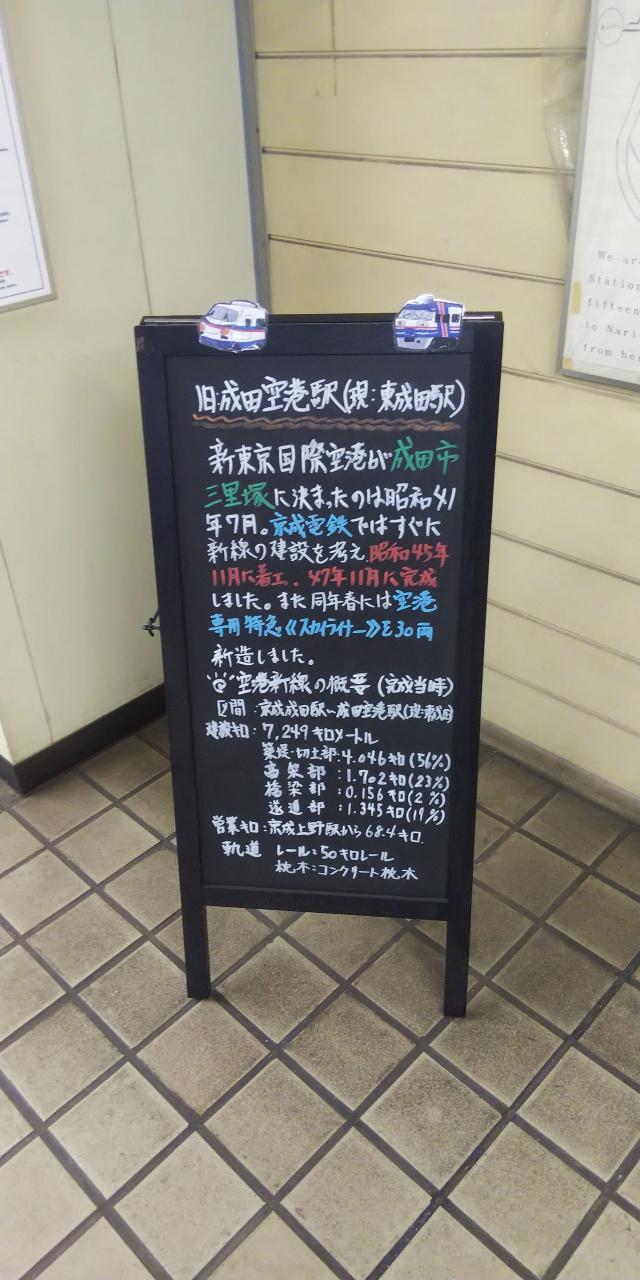 旧:成田空港駅(現:東成田駅)
新東京国際空港が成田市
三里塚に決まったのは昭和41
年7月。京成電鉄ではすぐに
新線の建設を考え、昭和45年
11月に着工、47年11月に完成
しました。また同年春には空港
専用特急《スカイライナー》を30両
新造しました。
空港新線の概要(完成当時)
区間:京成成田駅~成田空港駅(現:東成田
建設キロ:7,249キロメートル
築堤・切土部:4.046キロ(56%)
高架部:1.702キロ(23%)
橋梁部:0.156キロ(2%)
隧道部:1.345キロ(19%)
営業キロ:京成上野駅から68.4キロ.
軌道 レール:50キロレール
枕木:コンクリート枕木
We are
Station
fifteen
to Nari
from her
です。